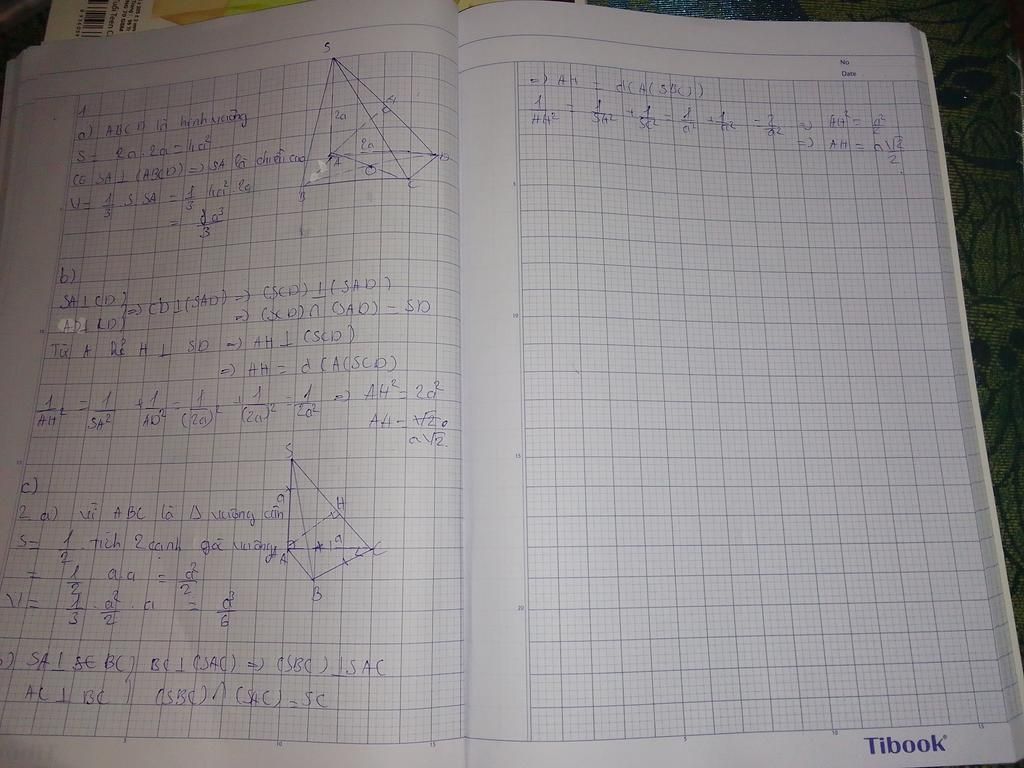 1
a) ABCD là hình vuông
S = 2a . 2a = 4a²
Có SA ⊥ (ABCD) => SA là chiều cao
V = 1/3 S.SA = 1/3 4a² 2a
= 8a³/3
S
2a
H
2a
A
D
O
B
C
b)
SA ⊥ CD } => CD ⊥ (SAD) => (SCD) ⊥ (SAD)
AD ⊥ CD } => (SCD) ∩ (SAD) = SD
Từ A kẻ H ⊥ SD => AH ⊥ (SCD)
=> AH = d(A(SCD)
1/AH² = 1/SA² + 1/AD² = 1/(2a)² + 1/(2a)² = 1/2a² => AH² = 2a²
AH = √2
a√2.
c)
2 a) Vì ABC là Δ vuông cân
S = 1/2 . tích 2 cạnh góc vuông
= 1/2 a.a = a²/2
V = 1/3 . a²/2 . a = a³/6
S
a
H
a
A
C
B
b) SA ⊥ BC } BC ⊥ (SAC) => (SBC) ⊥ SAC
AC ⊥ BC } (SBC) ∩ (SAC) = SC
No
Date
=> AH = d(A(SBC))
1/AH² = 1/SA² + 1/SC² = 1/a² + 1/a² = 2/a² => AH² = a²/2
=> AH = a√2/2
5
10
15
20
5
10
15
Tibook